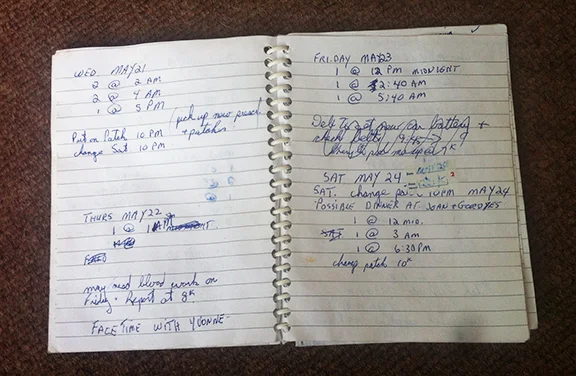 WED. MAY 21
2 @ 2 AM
2 @ 4 AM
1 @ 5 PM
pick up new
Put on Patch 10 PM + patches
change Sat 10 PM
THURS MAY 22
1 @
may need blood work on
Friday. Report at 8
FACETIME WITH YVONNE-
FRIDAY MAY 23
1 @ 12 PM MIDNIGHT
1 @ 2:40 AM
1 @ 5:40 AM
new car battery +
SAT MAY 24
SAT. change 10PM MAY 24
POSSIBLE DINNER AT JOAN + GORDYES
1 @ 12 mid.
1 @ 3 AM
1 @ 6:30 PM
change patch 10